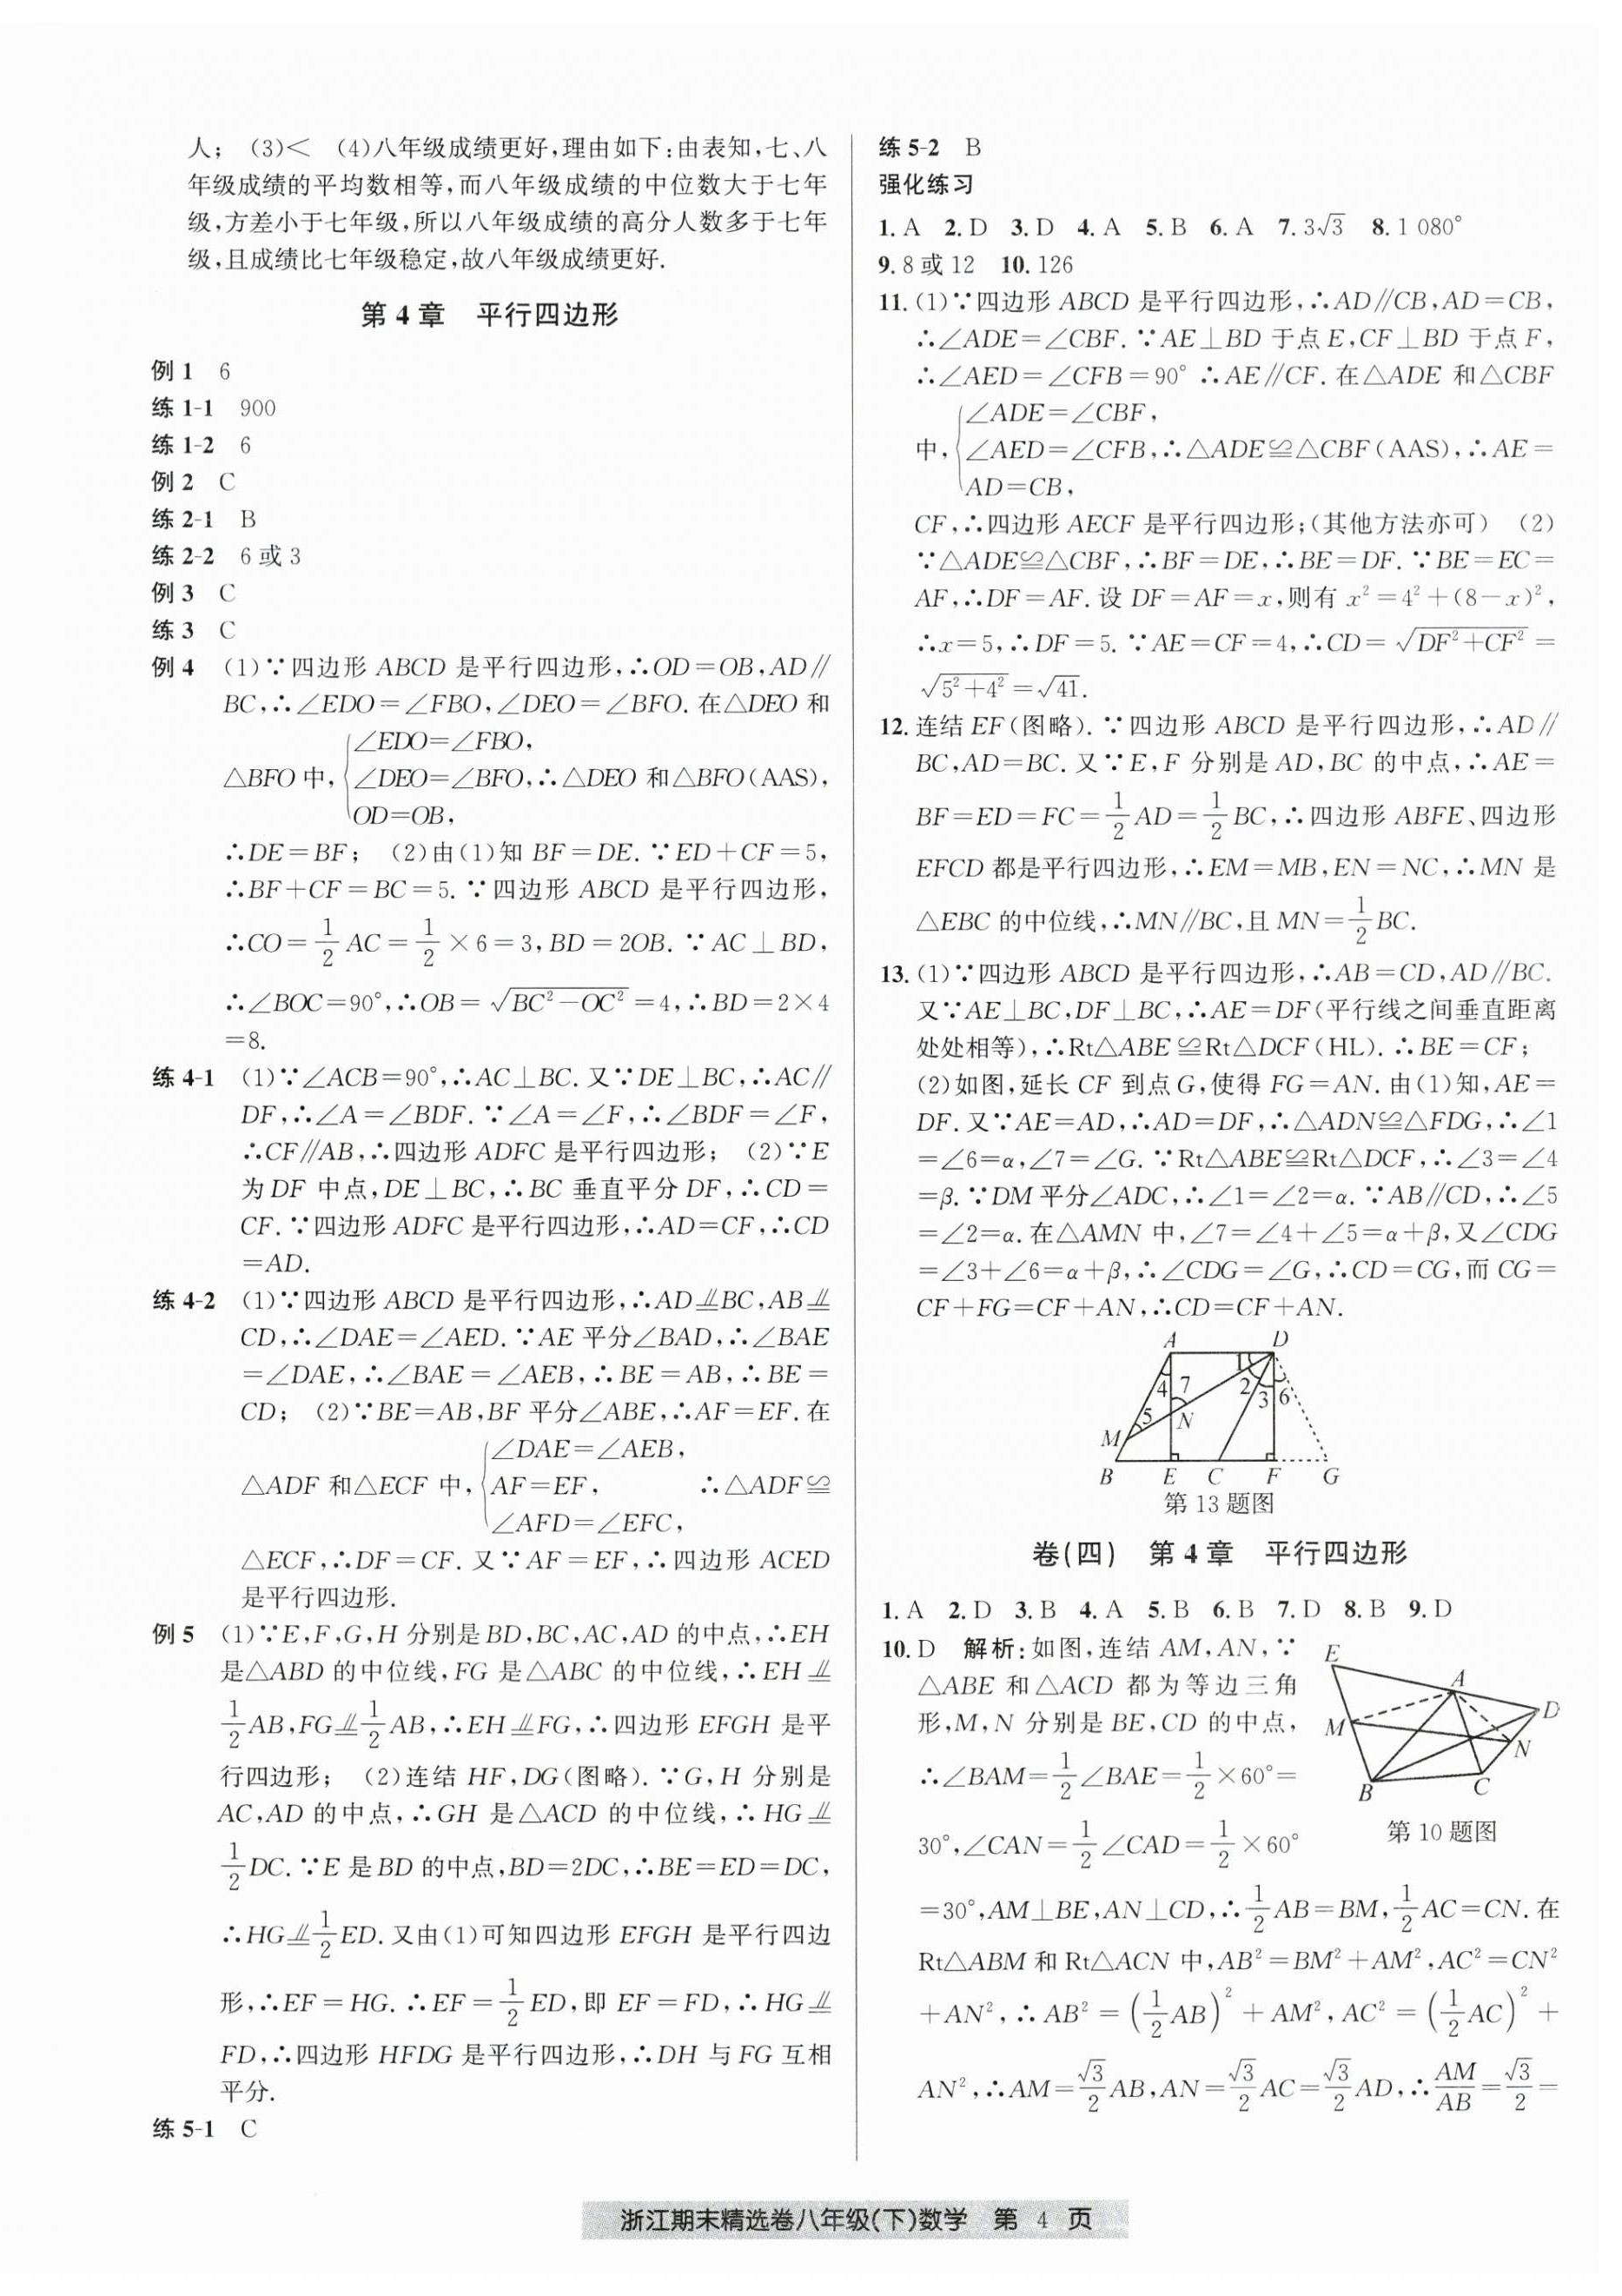 人；(3)＜ (4)八年级成绩更好,理由如下:由表知,七、八
年级成绩的平均数相等,而八年级成绩的中位数大于七年
级,方差小于七年级,所以八年级成绩的高分人数多于七年
级,且成绩比七年级稳定,故八年级成绩更好.
第4章 平行四边形
例1 6
练1-1 900
练1-2 6
例2 C
练2-1 B
练2-2 6或3
例3 C
练3 C
例4 (1)∵四边形ABCD是平行四边形,∴OD=OB,AD∥
BC,∴∠EDO=∠FBO,∠DEO=∠BFO.在△DEO和
∠EDO=∠FBO,
△BFO中,{∠DEO=∠BFO,∴△DEO和△BFO(AAS),
OD=OB,
∴DE=BF； (2)由(1)知BF=DE.∵ED+CF=5,
∴BF+CF=BC=5.∵四边形ABCD是平行四边形,
∴CO=1/2 AC=1/2×6=3,BD=2OB.∵AC⊥BD,
∴∠BOC=90°,∴OB=√(BC²-OC²)=4,∴BD=2×4
=8.
练4-1 (1)∵∠ACB=90°,∴AC⊥BC.又∵DE⊥BC,∴AC∥
DF,∴∠A=∠BDF.∵∠A=∠F,∴∠BDF=∠F,
∴CF∥AB,∴四边形ADFC是平行四边形； (2)∵E
为DF中点,DE⊥BC,∴BC垂直平分DF,∴CD=
CF.∵四边形ADFC是平行四边形,∴AD=CF,∴CD
=AD.
练4-2 (1)∵四边形ABCD是平行四边形,∴AD⫽BC,AB⫽
CD,∴∠DAE=∠AED.∵AE平分∠BAD,∴∠BAE
=∠DAE,∴∠BAE=∠AEB,∴BE=AB,∴BE=
CD； (2)∵BE=AB,BF平分∠ABE,∴AF=EF.在
∠DAE=∠AEB,
△ADF和△ECF中,{AF=EF, ∴△ADF≌
∠AFD=∠EFC,
△ECF,∴DF=CF.又∵AF=EF,∴四边形ACED
是平行四边形.
例5 (1)∵E,F,G,H分别是BD,BC,AC,AD的中点,∴EH
是△ABD的中位线,FG是△ABC的中位线,∴EH⫽
1/2 AB,FG⫽1/2 AB,∴EH⫽FG,∴四边形EFGH是平
行四边形； (2)连结HF,DG(图略).∵G,H分别是
AC,AD的中点,∴GH是△ACD的中位线,∴HG⫽
1/2 DC.∵E是BD的中点,BD=2DC,∴BE=ED=DC,
∴HG⫽1/2 ED.又由(1)可知四边形EFGH是平行四边
形,∴EF=HG.∴EF=1/2 ED,即EF=FD,∴HG⫽
FD,∴四边形HFDG是平行四边形,∴DH与FG互相
平分.
练5-1 C
练5-2 B
强化练习
1.A 2.D 3.D 4.A 5.B 6.A 7.3√3 8.1 080°
9.8或12 10.126
11.(1)∵四边形ABCD是平行四边形,∴AD∥CB,AD=CB,
∴∠ADE=∠CBF.∵AE⊥BD于点E,CF⊥BD于点F,
∴∠AED=∠CFB=90° ∴AE∥CF.在△ADE和△CBF
∠ADE=∠CBF,
中,{∠AED=∠CFB,∴△ADE≌△CBF(AAS),∴AE=
AD=CB,
CF,∴四边形AECF是平行四边形;(其他方法亦可) (2)
∵△ADE≌△CBF,∴BF=DE,∴BE=DF.∵BE=EC=
AF,∴DF=AF.设DF=AF=x,则有x²=4²+(8-x)²,
∴x=5,∴DF=5.∵AE=CF=4,∴CD=√(DF²+CF²)=
√(5²+4²)=√41.
12.连结EF(图略).∵四边形ABCD是平行四边形,∴AD∥
BC,AD=BC.又∵E,F分别是AD,BC的中点,∴AE=
BF=ED=FC=1/2 AD=1/2 BC,∴四边形ABFE、四边形
EFCD都是平行四边形,∴EM=MB,EN=NC,∴MN是
△EBC的中位线,∴MN∥BC,且MN=1/2 BC.
13.(1)∵四边形ABCD是平行四边形,∴AB=CD,AD∥BC.
又∵AE⊥BC,DF⊥BC,∴AE=DF(平行线之间垂直距离
处处相等),∴Rt△ABE≌Rt△DCF(HL).∴BE=CF；
(2)如图,延长CF到点G,使得FG=AN.由(1)知,AE=
DF.又∵AE=AD,∴AD=DF,∴△ADN≌△FDG,∴∠1
=∠6=α,∠7=∠G.∵Rt△ABE≌Rt△DCF,∴∠3=∠4
=β.∵DM平分∠ADC,∴∠1=∠2=α.∵AB∥CD,∴∠5
=∠2=α.在△AMN中,∠7=∠4+∠5=α+β,又∠CDG
=∠3+∠6=α+β,∴∠CDG=∠G,∴CD=CG,而CG=
CF+FG=CF+AN,∴CD=CF+AN.
A D
1
4 7 2 3 6
5 N
M
B E C F G
第13题图
卷(四) 第4章 平行四边形
1.A 2.D 3.B 4.A 5.B 6.B 7.D 8.B 9.D
10.D 解析:如图,连结AM,AN,∵
△ABE和△ACD都为等边三角
形,M,N分别是BE,CD的中点,
∴∠BAM=1/2∠BAE=1/2×60°=
30°,∠CAN=1/2∠CAD=1/2×60°
E
A
D
M
N
B C
第10题图
=30°,AM⊥BE,AN⊥CD,∴1/2 AB=BM,1/2 AC=CN.在
Rt△ABM和Rt△ACN中,AB²=BM²+AM²,AC²=CN²
+AN²,∴AB²=(1/2 AB)²+AM²,AC²=(1/2 AC)²+
AN²,∴AM=√3/2 AB,AN=√3/2 AC=√3/2 AD,∴AM/AB=√3/2=
浙江期末精选卷八年级(下)数学 第 4 页